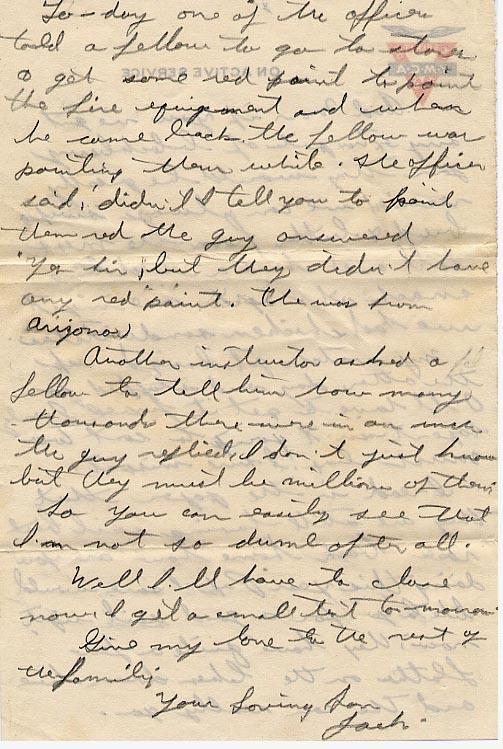 To-day one of the officer
told a fellow to go to stores
& get some red paint to paint
the fire equipment and when
he came back the fellow was
painting them white. The officer
said, didn't I tell you to paint
them red the guy answered
"Yes sir, but they didn't have
any red paint. (He was from
Arizona)
Another instructor asked a
fellow to tell him how many
thousands there were in an inch
the guy replied, I don't just know
but they must be millions of them.
So you can easily see that
I'm not so dumb after all.
Well I'll have to close
now, I get a small test to-morrow
Give my love to the rest of
the family
Your Loving Son
Jack.
Y.M.C.A.
ON ACTIVE SERVICE